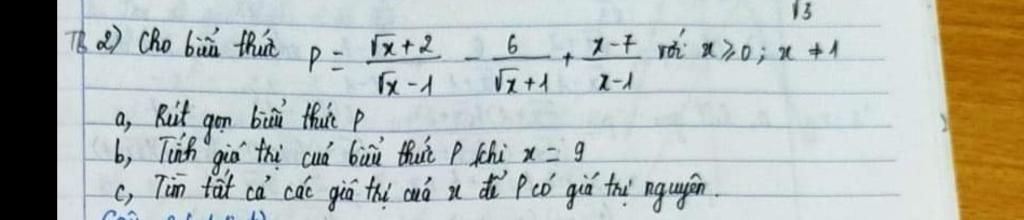 √3
2) Cho biểu thức P = (√x + 2)/(√x - 1) - 6/(√x + 1) + (x - 7)/(x - 1) với x ≥ 0; x ≠ 1
a, Rút gọn biểu thức P
b, Tính giá trị của biểu thức P khi x = 9
c, Tìm tất cả các giá trị của x để P có giá trị nguyên.